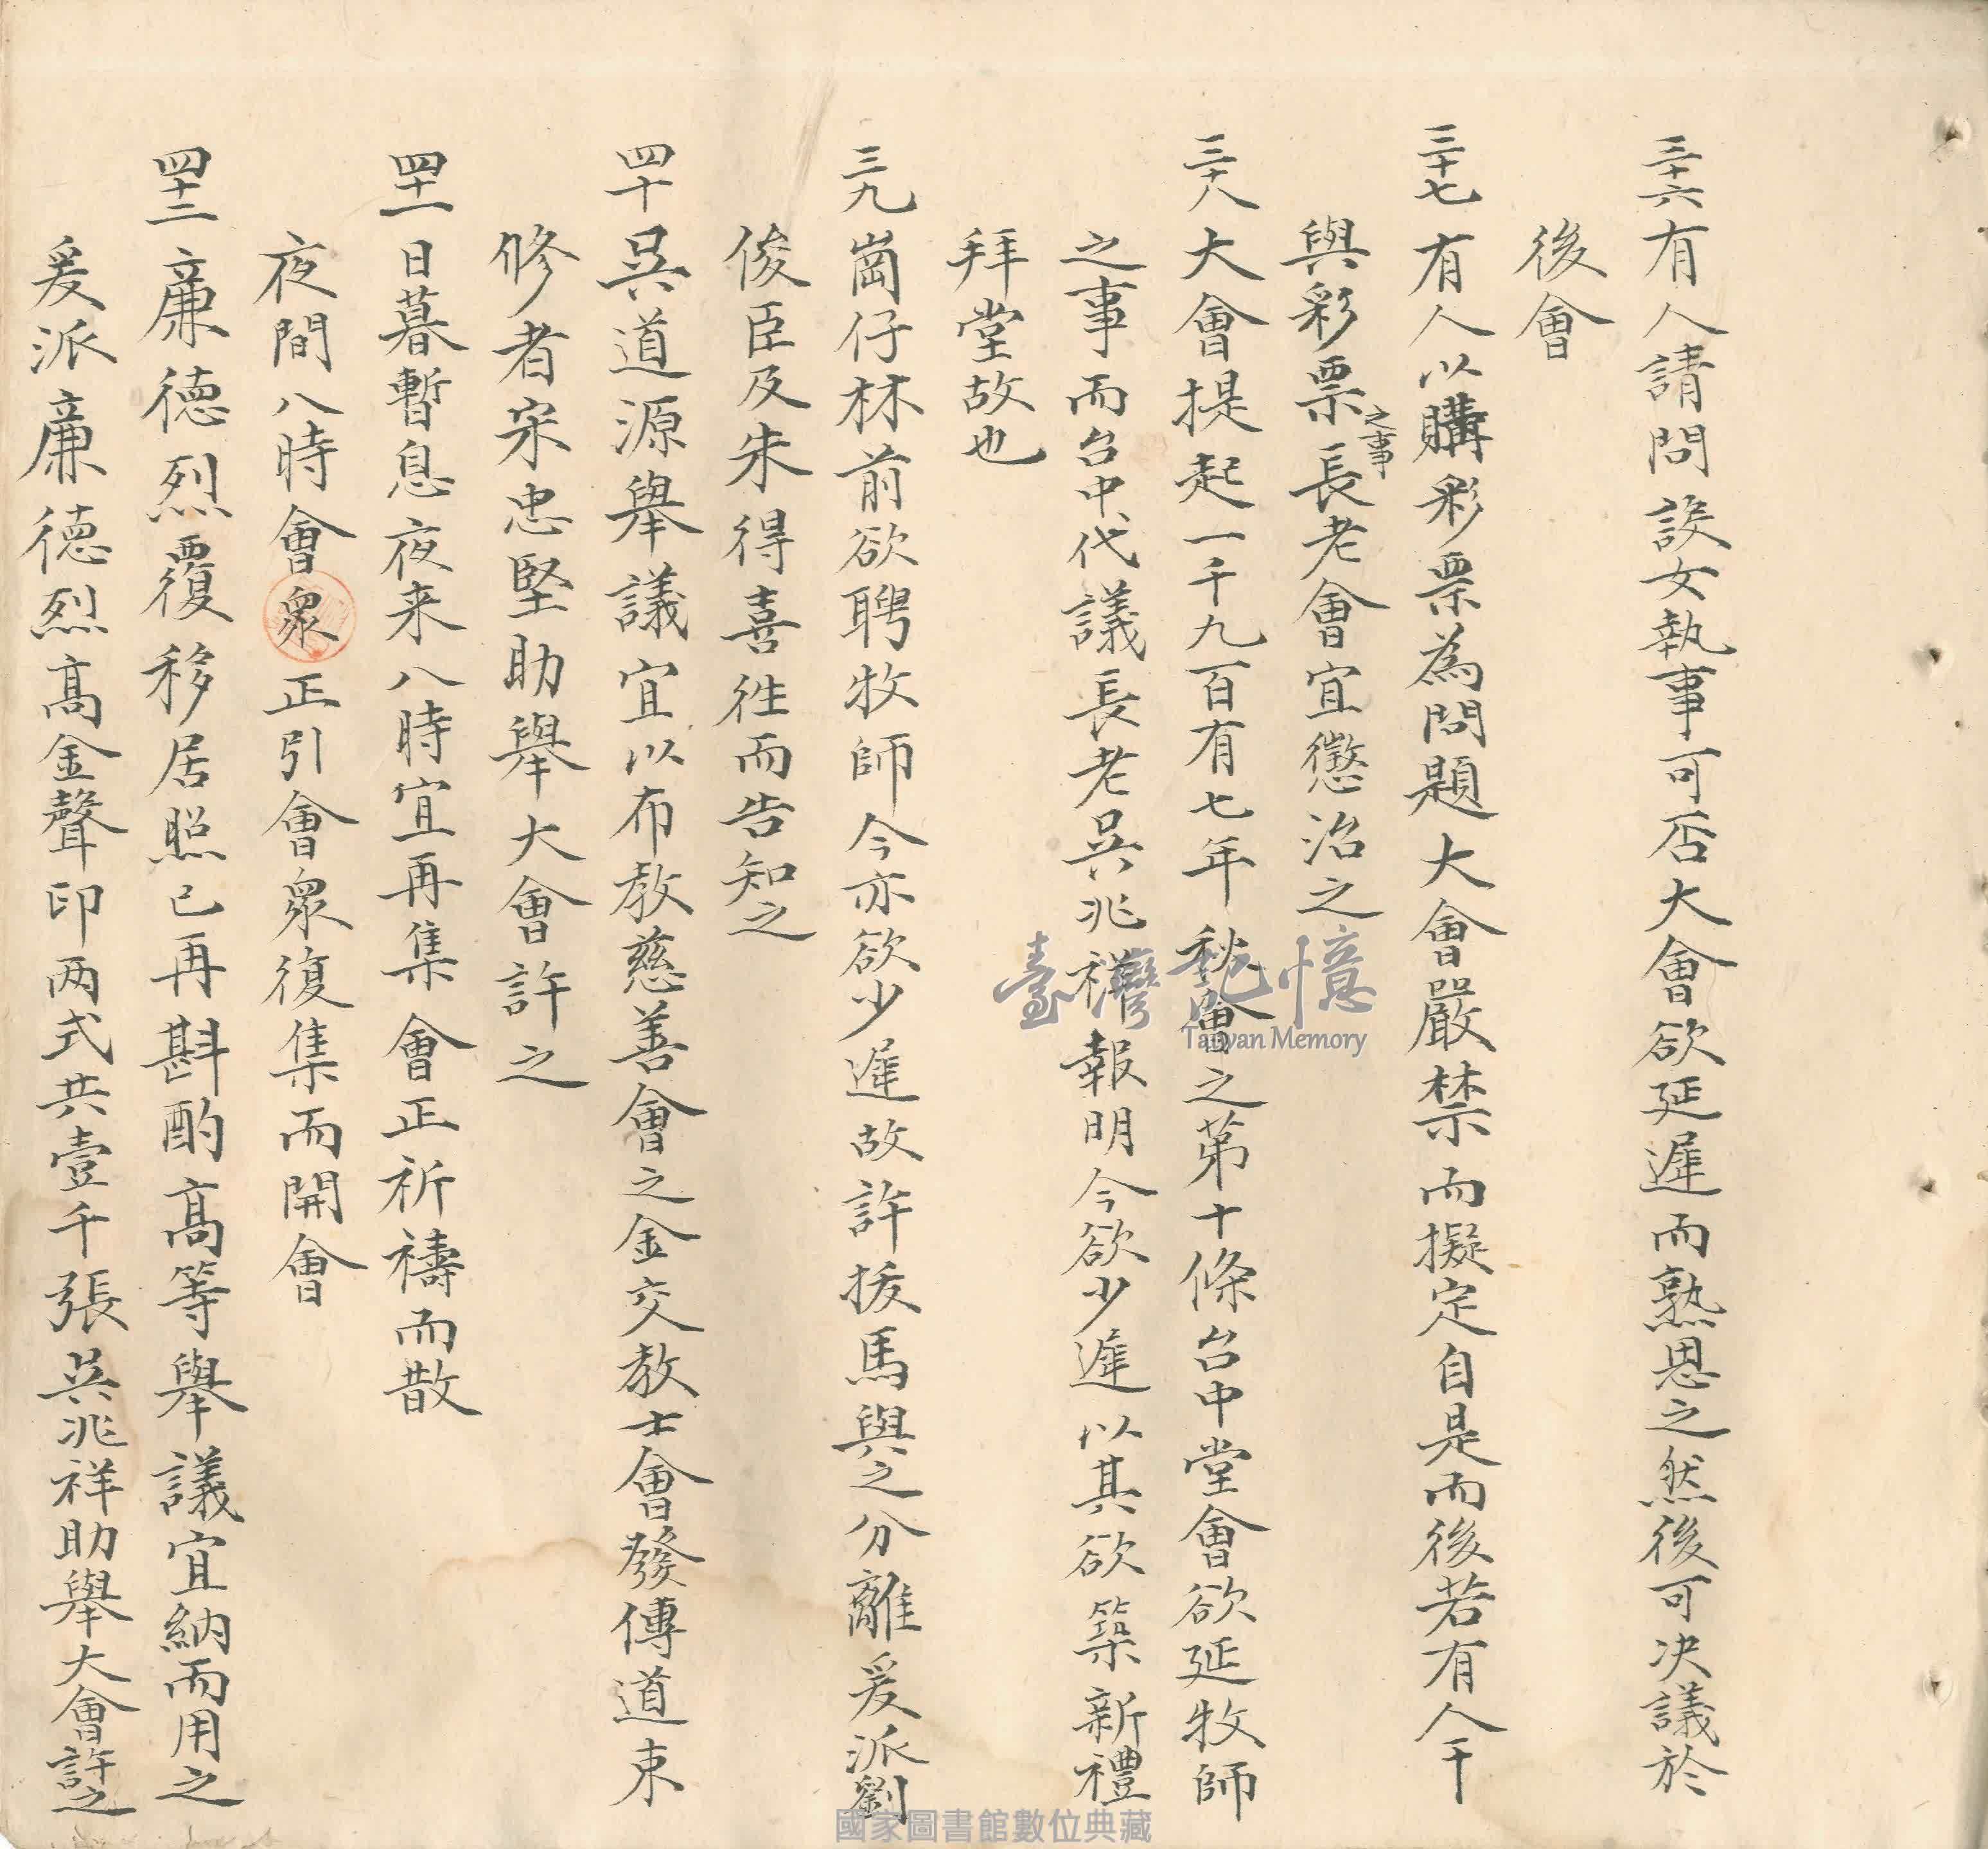 三十六有人請問設女執事可否大會欲延遲而熟思之然後可决議於
後會
三十七有人以購彩票為問題大會嚴禁而擬定自是而後若有人干
與彩票之事長老會宜懲治之
三十八大會提起一千九百有七年秋會之第十條台中堂會欲延牧師
之事而台中代議長老吳兆祥報明今欲少遲以其欲築新禮
拜堂故也
三十九崗仔林前欲聘牧師今亦欲少遲故許拔馬與之分離爰派劉
俊臣及朱得喜往而告知之
四十吳道源舉議宜以布教慈善會之金交教士會發傳道束
修者宋忠堅助舉大會許之
四十一日暮暫息夜来八時宜再集會正祈禱而散
夜間八時會衆正引會衆復集而開會
四十二廉德烈覆移居照已再斟酌高等舉議宜納而用之
爰派廉德烈高金聲印两式共壹千張吳兆祥助舉大會許之
臺灣記憶
Taiwan Memory
國家圖書館數位典藏